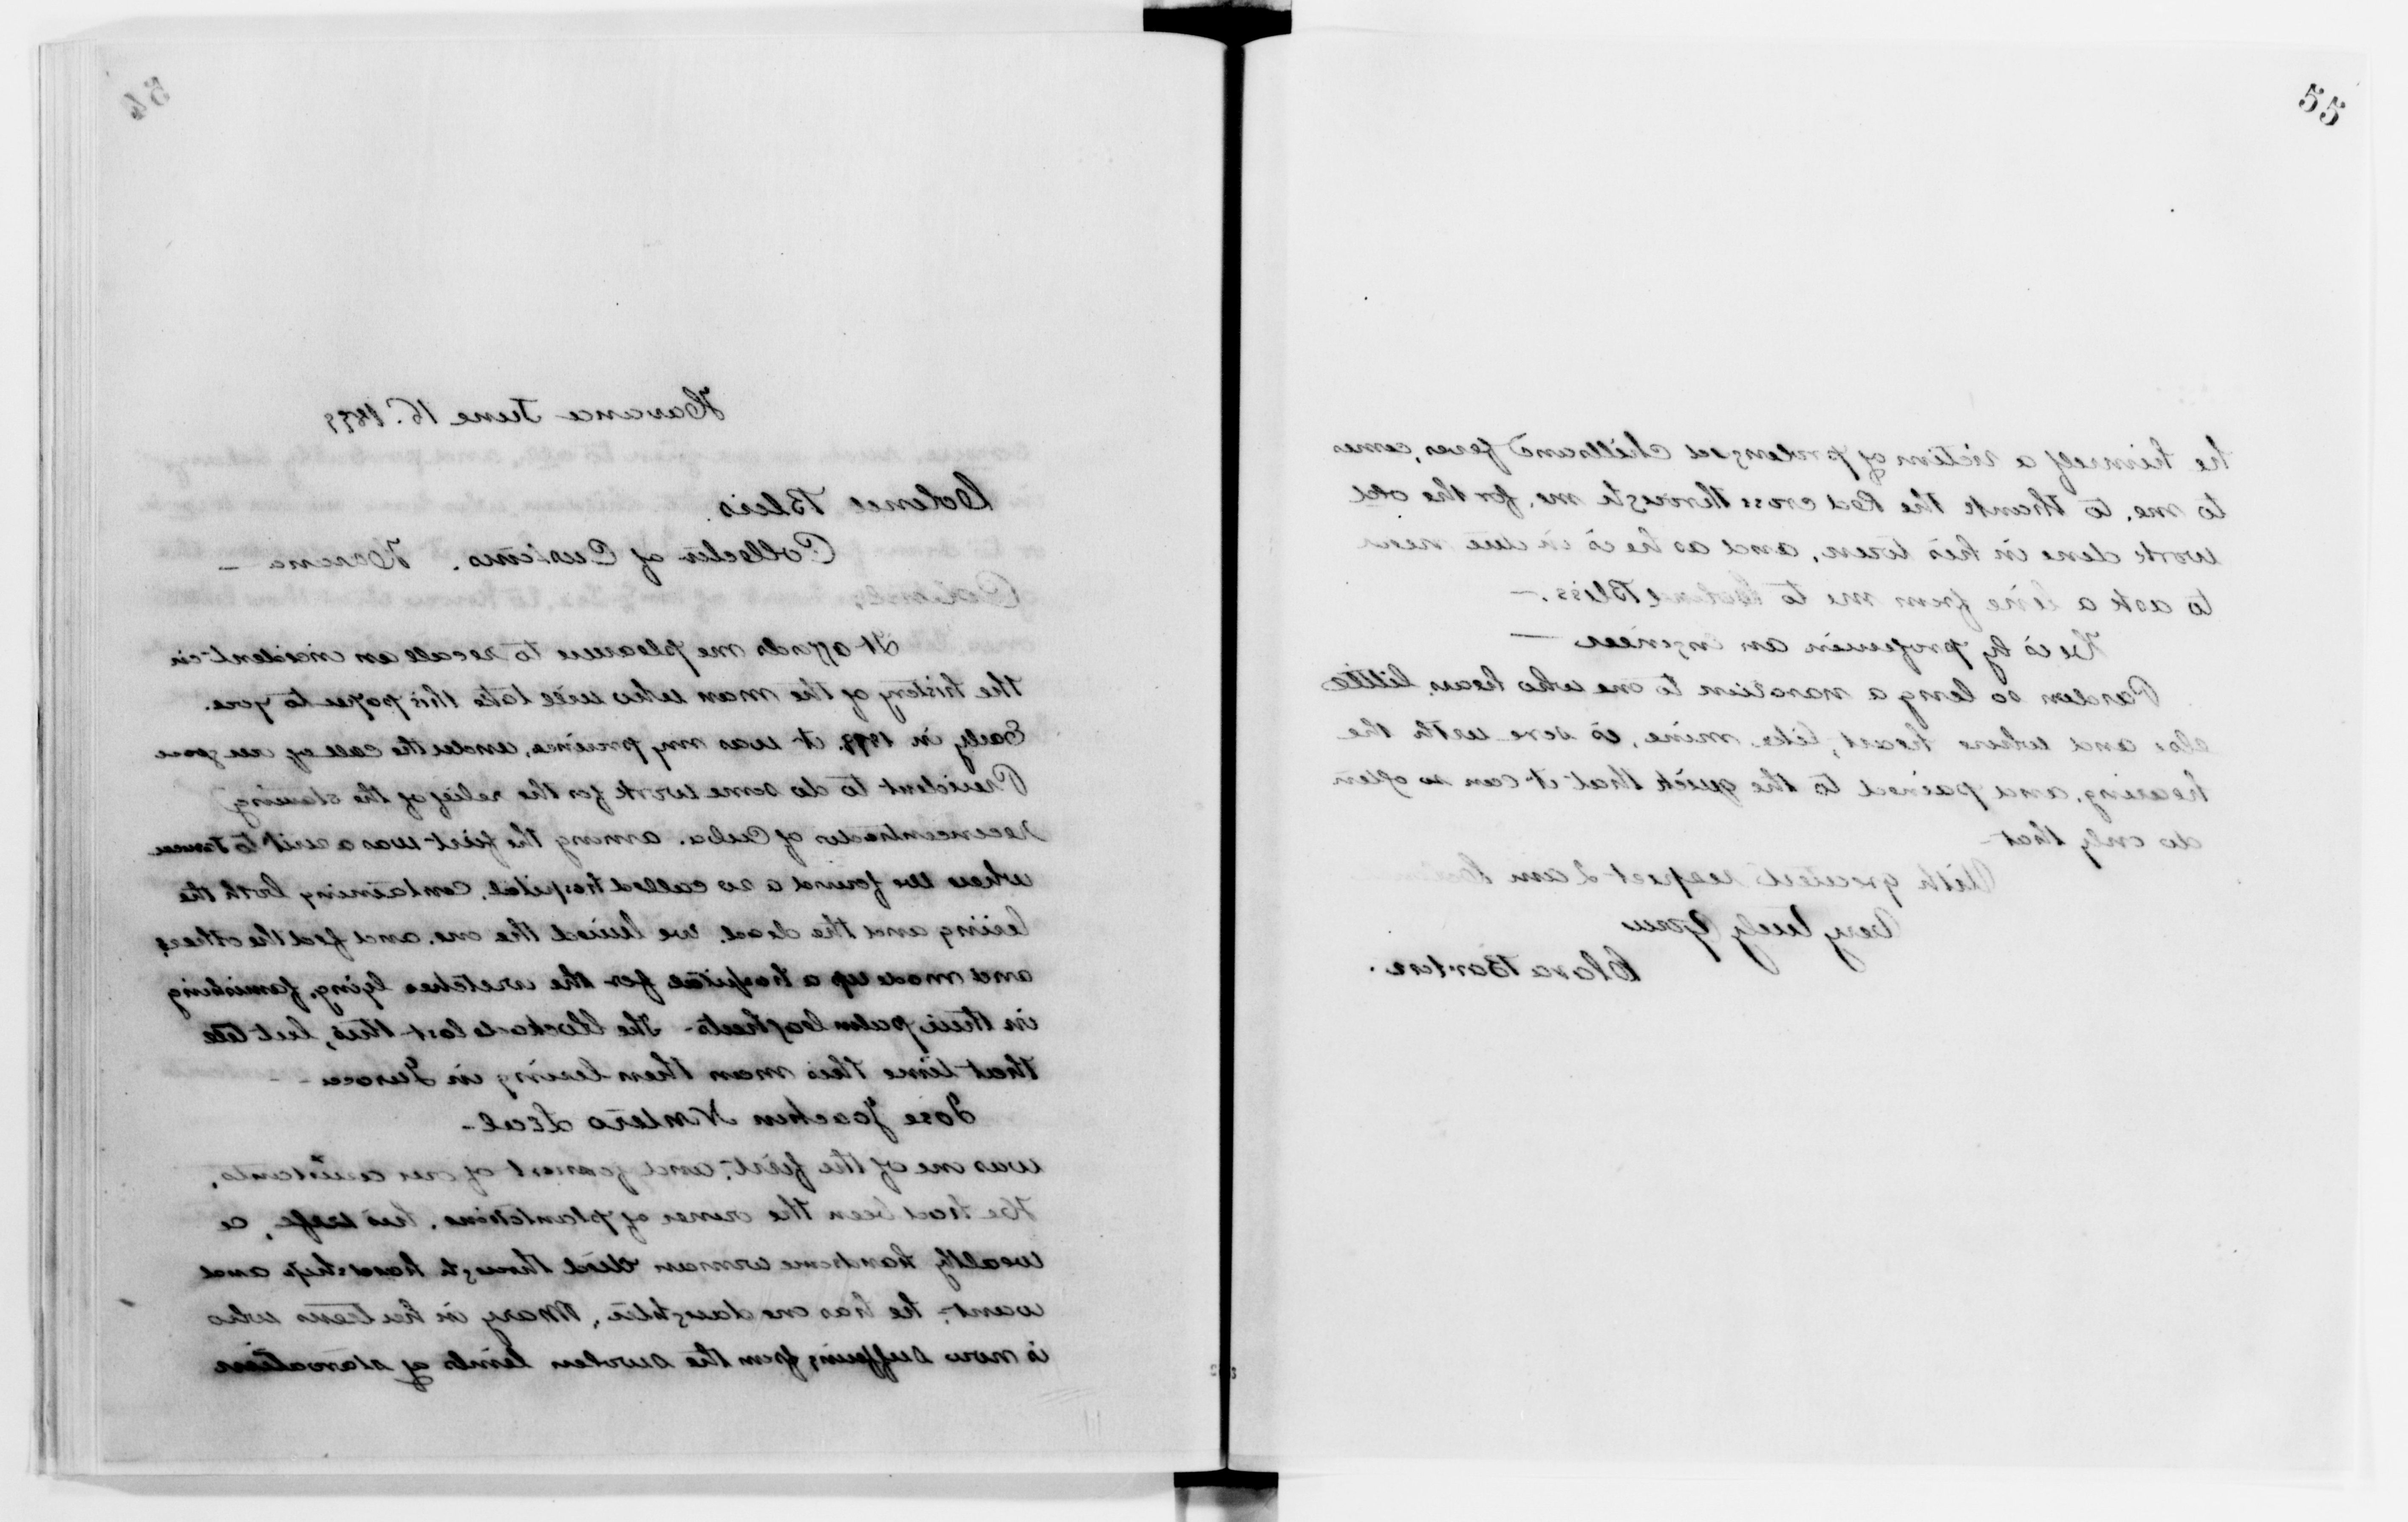 54
Havana June 16. 1899
Colonel Bliss.
Collector of Customs. Havana –
Colonel;
It affords me pleasure to recall an incident in
the history of the man who will take this paper to you.
Early in 1898. it was my province, under the call of our good
President to do some work for the relief of the starving
reconcentrados of Cuba. among the first was a visit to Jaruco
where we found a so called hospital. containing both the
living and the dead. we buried the one. and fed the others,
and made up a hospital for the wretches lying, famishing
in their palm leaf huts – The blockade lost this, but till
that time this man then living in Jaruco –
Jose Joachin Nontero Leal –
was one of the first, and foremost of our assistants.
He had been the owner of plantations. his wife, a
wealthy handsome woman died through hardship and
want, he has one daughter, Mary in her teens who
is now suffering from the swollen limbs of starvation
55
he himself a victim of prolonged chills and fever, comes
to me, to thank the Red Cross through me, for the old
work done in his town, and as he is in due need
to ask a line from me to Colonel Bliss. –
He is by profession an engineer –
Pardon so long a narration to one who hears little
else and whose heart, like mine, is sore with the
hearing, and pained to the quick that it can so often
do only that –
With greatest respect I am
Very truly Yours
Clara Barton.